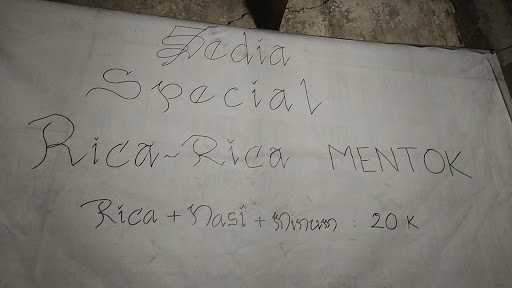 Sedia
Special
Rica-Rica MENTOK
Rica + Nasi + Minum : 20 K